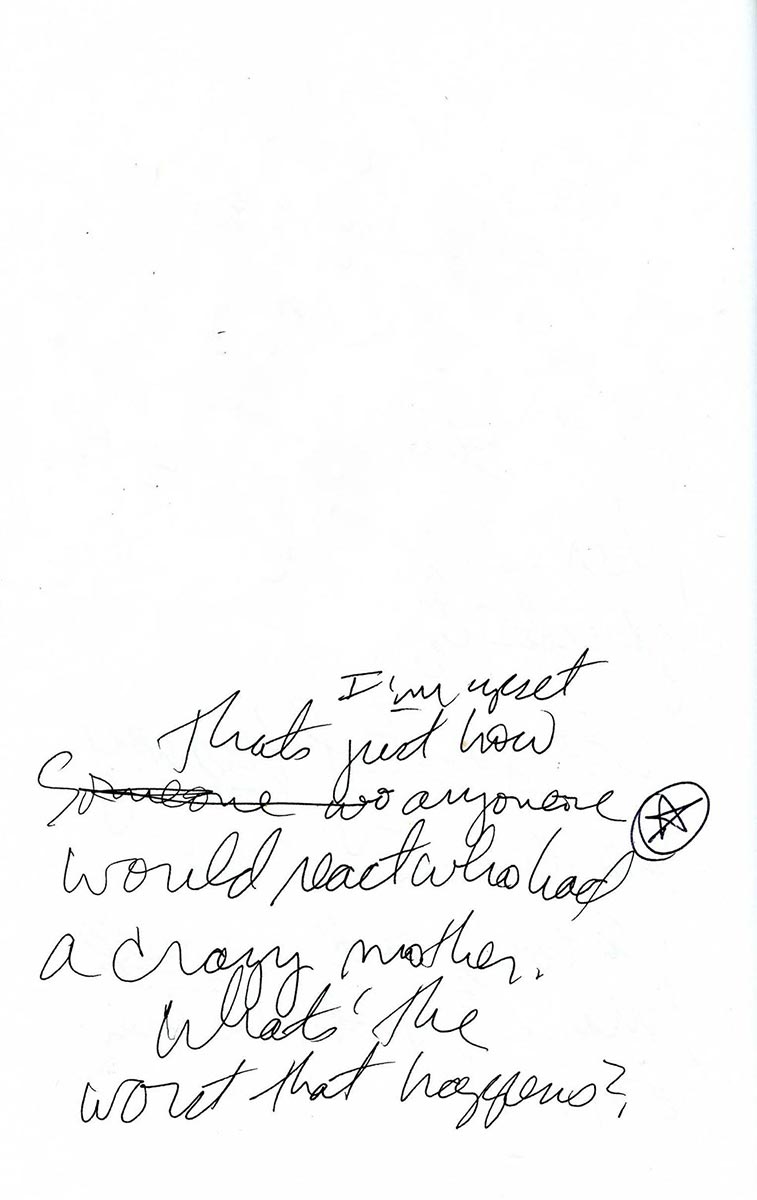 I'm upset
Thats just how
Someone wo anyoneone
would react who had
a crazy mother.
Whats' the
worst that happens?